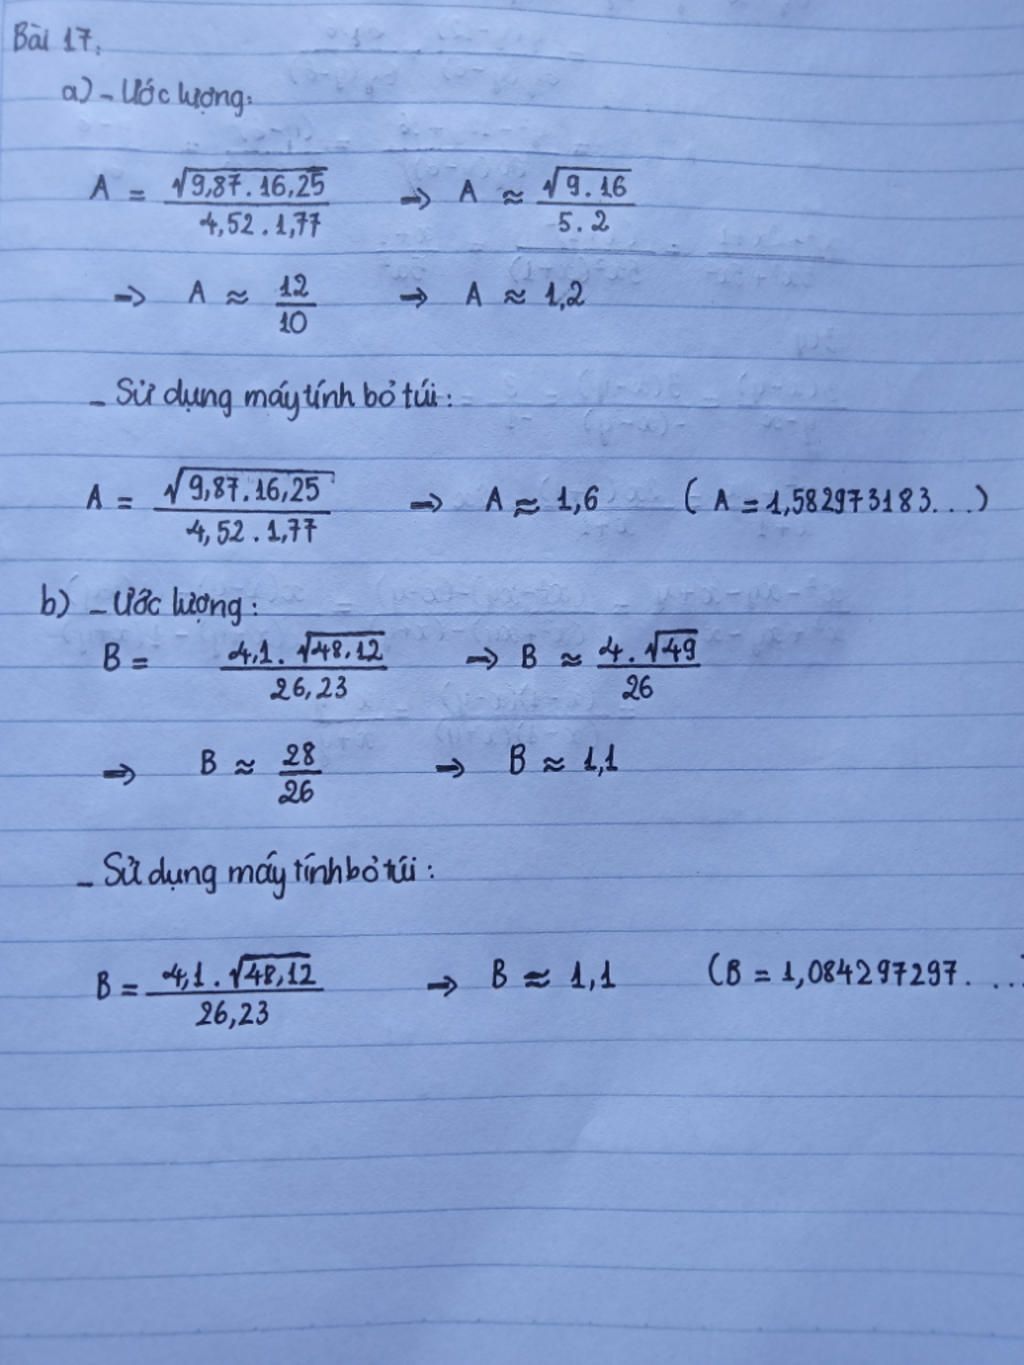 Bài 17:
a) - Ước lượng:
A = √9,87.16,25 / 4,52.1,77 => A ≈ √9.16 / 5.2
=> A ≈ 12/10 => A ≈ 1,2
- Sử dụng máy tính bỏ túi:
A = √9,87.16,25 / 4,52.1,77 => A ≈ 1,6 (A = 1,582973183...)
b) - Ước lượng:
B = 4,1.√48,12 / 26,23 => B ≈ 4.√49 / 26
=> B ≈ 28/26 => B ≈ 1,1
- Sử dụng máy tính bỏ túi:
B = 4,1.√48,12 / 26,23 => B ≈ 1,1 (B = 1,084297297....